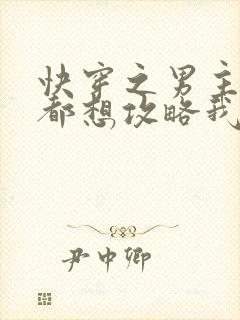 快穿之男主
都想攻略我
尹中卿